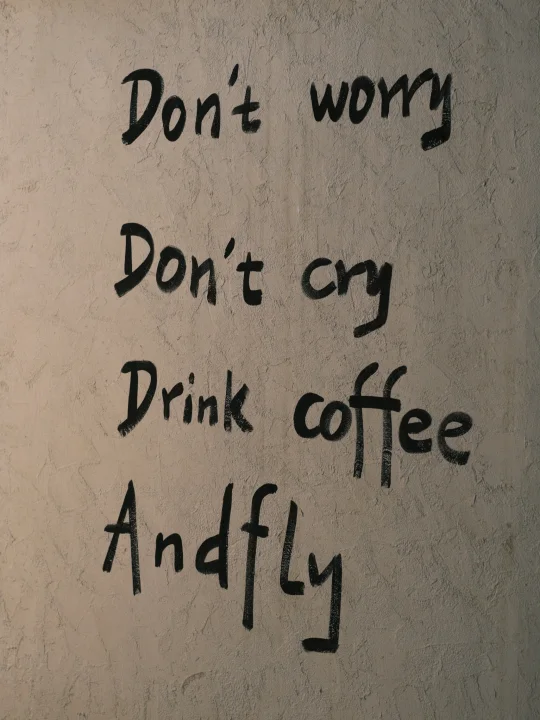 Don't worry
Don't cry
Drink coffee
Andfly